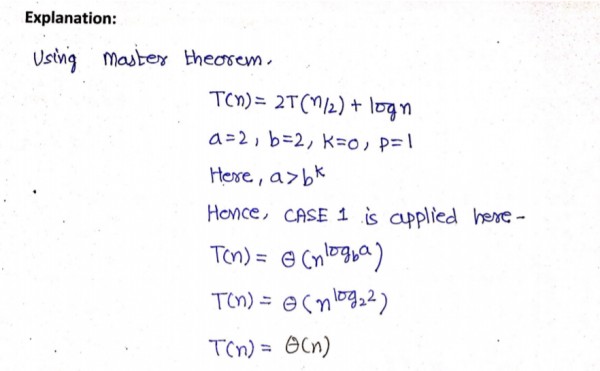 Explanation:
Using Master theorem.
T(n) = 2T(n/2) + logn
a=2, b=2, k=0, p=1
Here, a>b^k
Hence, CASE 1 is applied here -
T(n) = θ(n^log_b a)
T(n) = θ(n^log_2 2)
T(n) = θ(n)